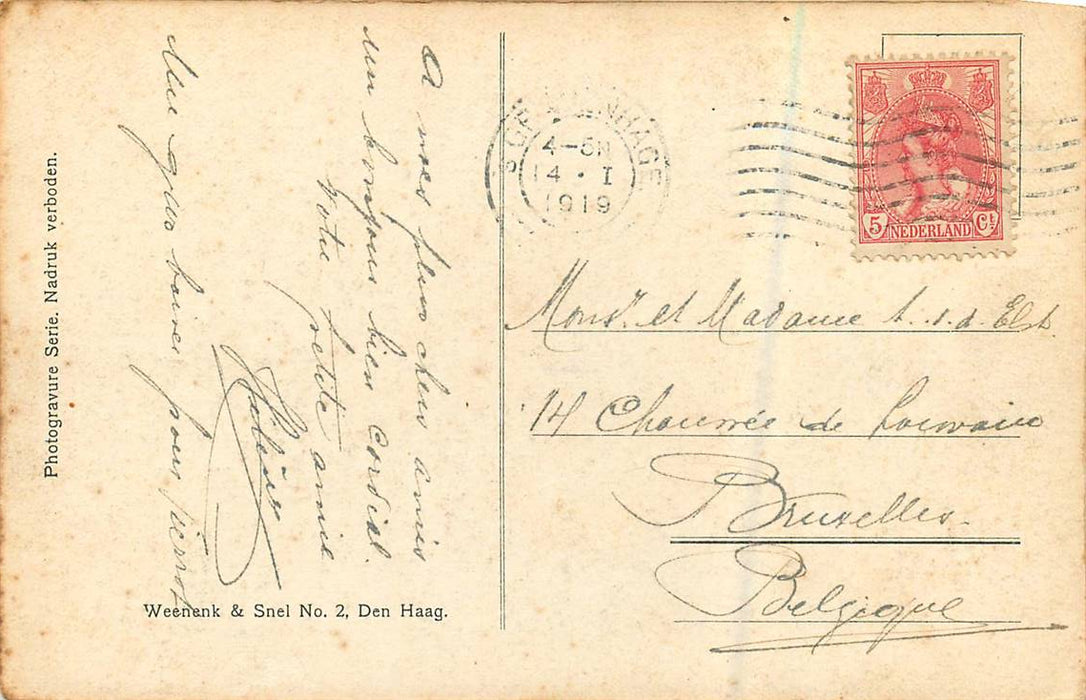 A mes plus chers amis
un bonjour bien cordial.
Votre petite amie
Une gros baiser pour Pierrot
Photogravure Serie. Nadruk verboden.
Weenenk & Snel No. 2, Den Haag.
'S GRAVENHAGE
4-5N
14 · I
1919
5 NEDERLAND Ct
Monsr. et Madame t. s. d. Elst
14 Chaussée de Louvain
Bruxelles.
Belgique